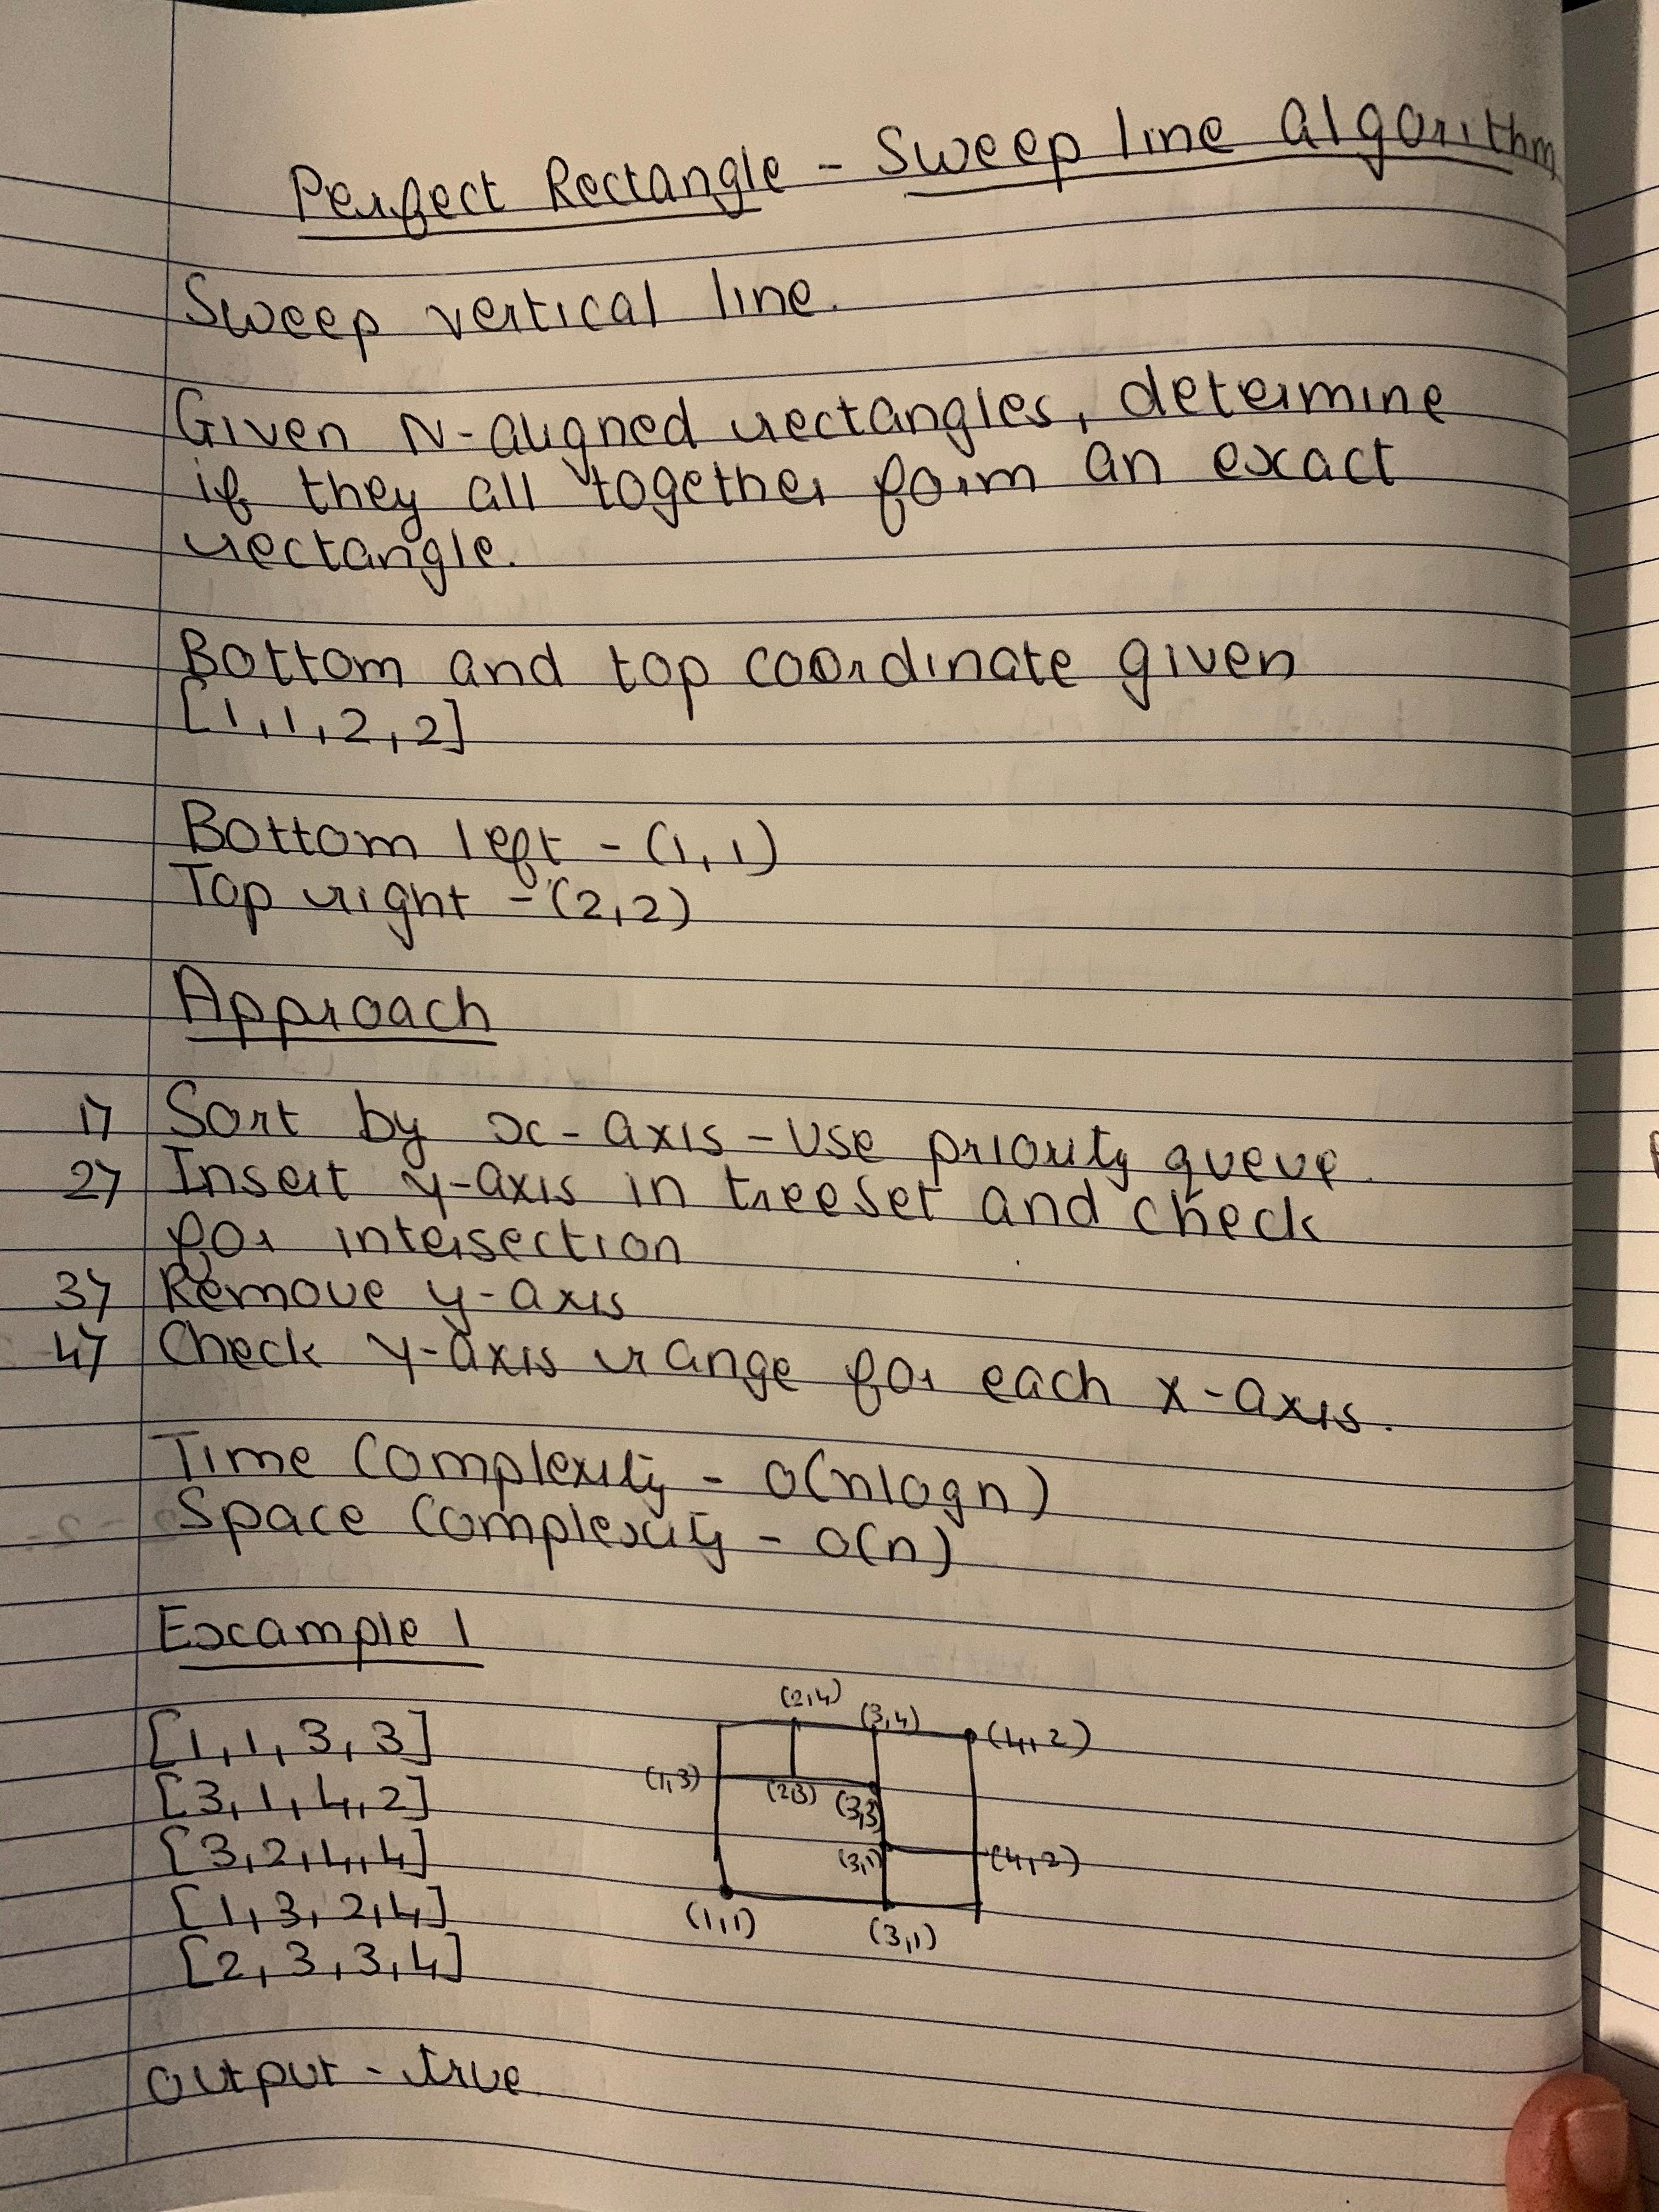 Perfect Rectangle - Sweep line Algorithm
Sweep vertical line.
Given N-aligned rectangles, determine
if they all together form an exact
rectangle.
Bottom and top coordinate given
[1,1,2,2]
Bottom left - (1,1)
Top right - (2,2)
Approach
1) Sort by x-axis - Use priority queue.
2) Insert y-axis in treeset and check
for intersection
3) Remove y-axis
4) Check y-axis range for each x-axis.
Time Complexity - O(nlogn)
Space Complexity - O(n)
Example 1
(2,4)
(3,4)
[1,1,3,3]
(4,2)
(1,3)
(2,3)
[3,1,4,2]
(3,3)
[3,2,4,4]
(3,1)
(4,2)
[1,3,2,4]
(1,1)
(3,1)
[2,3,3,4]
Output - true